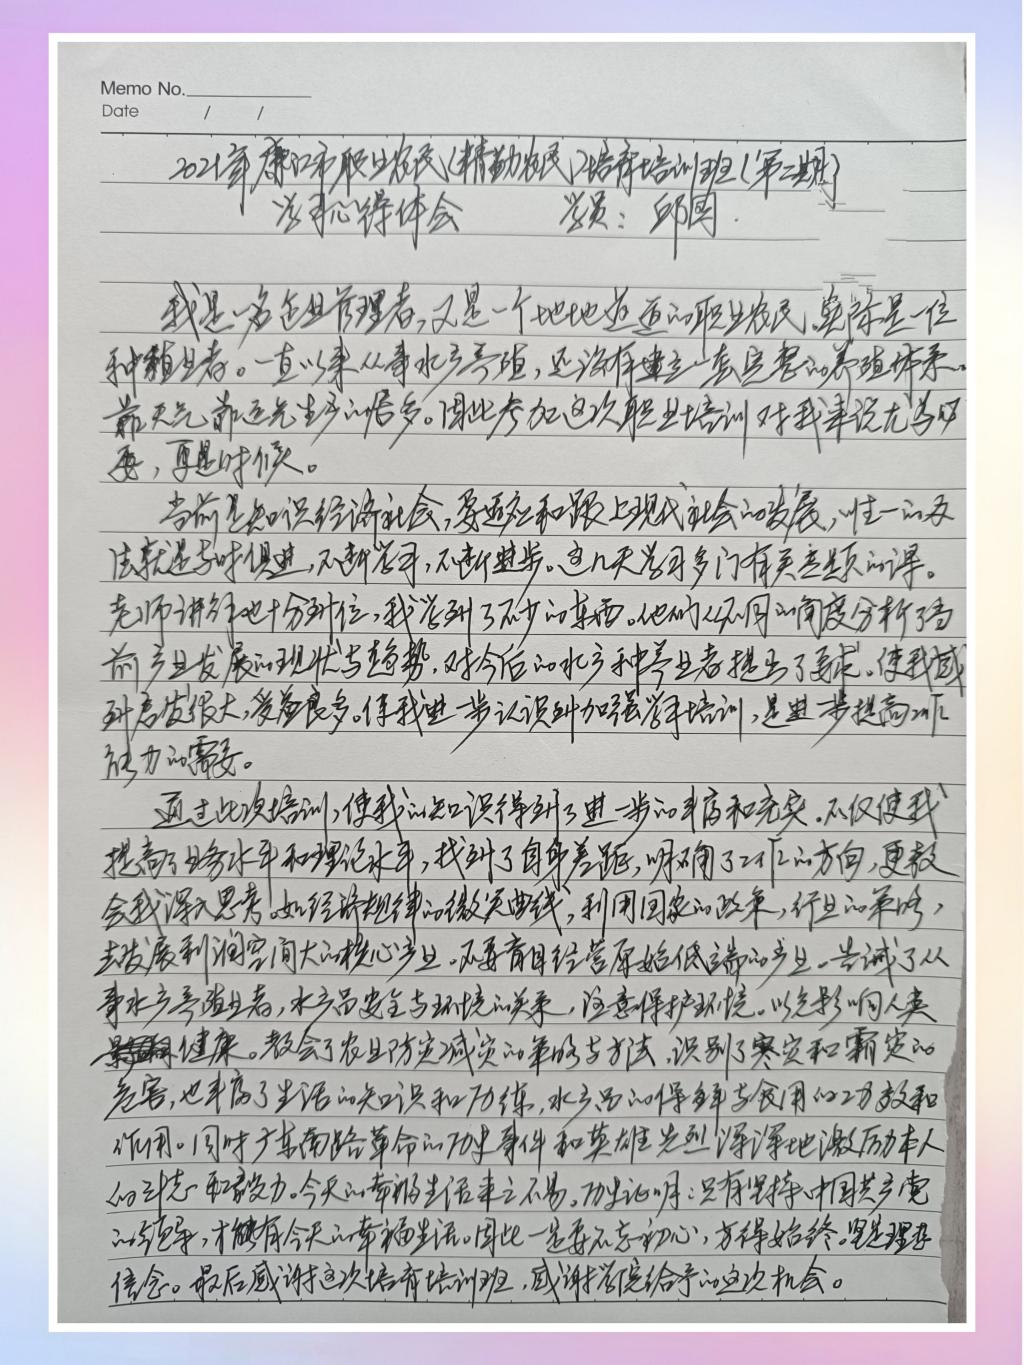 Memo No.
Date / /
2021年廉江市职业农民(精勤农民)培育培训班(第二期)
学习心得体会 学员：邱图
我是一名企业管理者，又是一个地地道道的职业农民，实际是一位
种植业者。一直以来从事水产养殖，还没有建立一套完整的养殖体系。
靠天气靠运气生产的居多。因此参加这次职业培训对我来说尤为必
要，更是时候。
当前是知识经济社会，要适应和跟上现代社会的发展，唯一的办
法就是与时俱进，不断学习，不断进步。这几天学习多门有关主题的课。
老师讲得也十分到位，我学到了不少的东西。他们从不同的角度分析了当
前产业发展的现状与趋势，对今后的水产种养业者提出了要求。使我感
到启发很大，受益良多。使我进一步认识到加强学习培训，是进一步提高工作
能力的需要。
通过此次培训，使我的知识得到了进一步的丰富和充实。不仅使我
提高了业务水平和理论水平，找到了自身差距，明确了工作的方向，更教
会我深入思考。如经济规律的微笑曲线，利用国家的政策，行业的策略，
去发展利润空间大的核心产业。不要盲目经营原始低端的产业。告诫了从
事水产养殖业者，水产品安全与环境的关系，注意保护环境。以免影响人类
健康。教会了农业防灾减灾的策略与方法，识别了寒灾和霜灾的
危害，也丰富了生活的知识和历练，水产品的保鲜与食用的功效和
作用。同时广东南路革命的历史事件和英雄先烈深深地激励本人
的斗志和毅力。今天的幸福生活来之不易。历史证明：只有坚持中国共产党
的领导，才能有今天的幸福生活。因此一定要不忘初心，方得始终。坚定理想
信念。最后感谢这次培育培训班，感谢学院给予的这次机会。